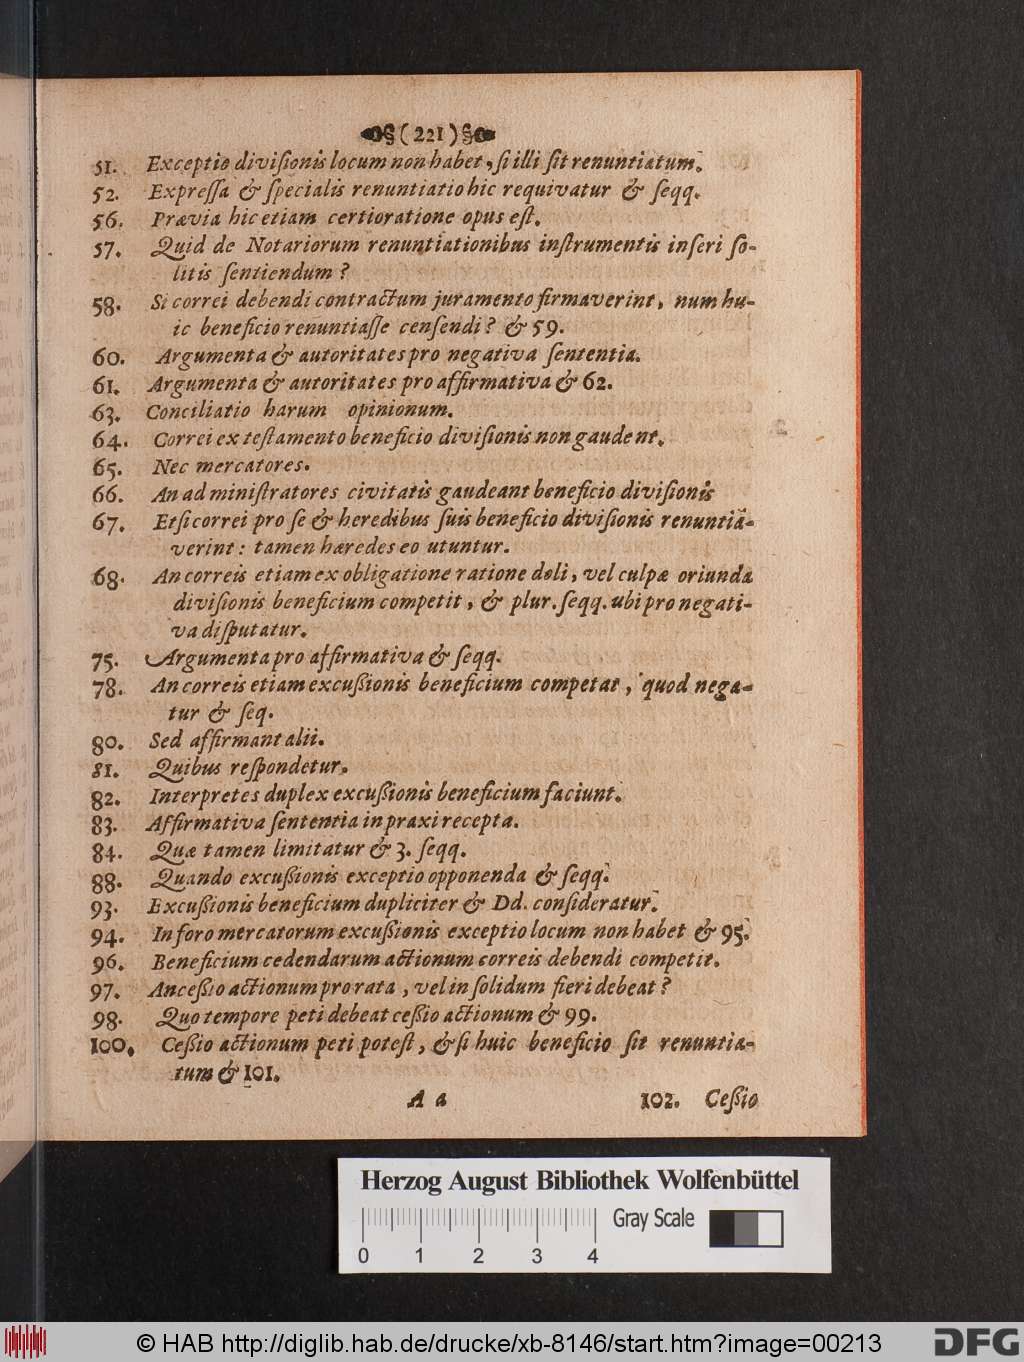 (221)
51. Exceptio divisionis locum non habet, si illi sit renuntiatum.
52. Expressa & specialis renuntiatio hic requivatur & seqq.
56. Prævia hic etiam certioratione opus est.
57. Quid de Notariorum renuntiationibus instrumentis inseri so-
litis sentiendum?
58. Si correi debendi contractum juramento firmaverint, num hu-
ic beneficio renuntiasse censendi? & 59.
60. Argumenta & autoritates pro negativa sententia.
61. Argumenta & autoritates pro affirmativa & 62.
63. Conciliatio harum opinionum.
64. Correi ex testamento beneficio divisionis non gaudent.
65. Nec mercatores.
66. An administratores civitatis gaudeant beneficio divisionis
67. Etsi correi pro se & heredibus suis beneficio divisionis renuntia-
verint: tamen hæredes eo utuntur.
68. An correis etiam ex obligatione ratione doli, vel culpæ oriunda
divisionis beneficium competit, & plur. seqq. ubi pro negati-
va disputatur.
75. Argumenta pro affirmativa & seqq.
78. An correis etiam excußionis beneficium competat, quod nega-
tur & seq.
80. Sed affirmant alii.
81. Quibus respondetur.
82. Interpretes duplex excußionis beneficium faciunt.
83. Affirmativa sententia in praxi recepta.
84. Quæ tamen limitatur & 3. seqq.
88. Quando excußionis exceptio opponenda & seqq.
93. Excußionis beneficium dupliciter & Dd. consideratur.
94. In foro mercatorum excußionis exceptio locum non habet & 95.
96. Beneficium cedendarum actionum correis debendi competit.
97. An ceßio actionum pro rata, vel in solidum fieri debeat?
98. Quo tempore peti debeat ceßio actionum & 99.
100. Ceßio actionum peti potest, & si huic beneficio sit renuntia-
tum & 101.
A a 102. Ceßio
Herzog August Bibliothek Wolfenbüttel
Gray Scale
0 1 2 3 4
© HAB http://diglib.hab.de/drucke/xb-8146/start.htm?image=00213
DFG